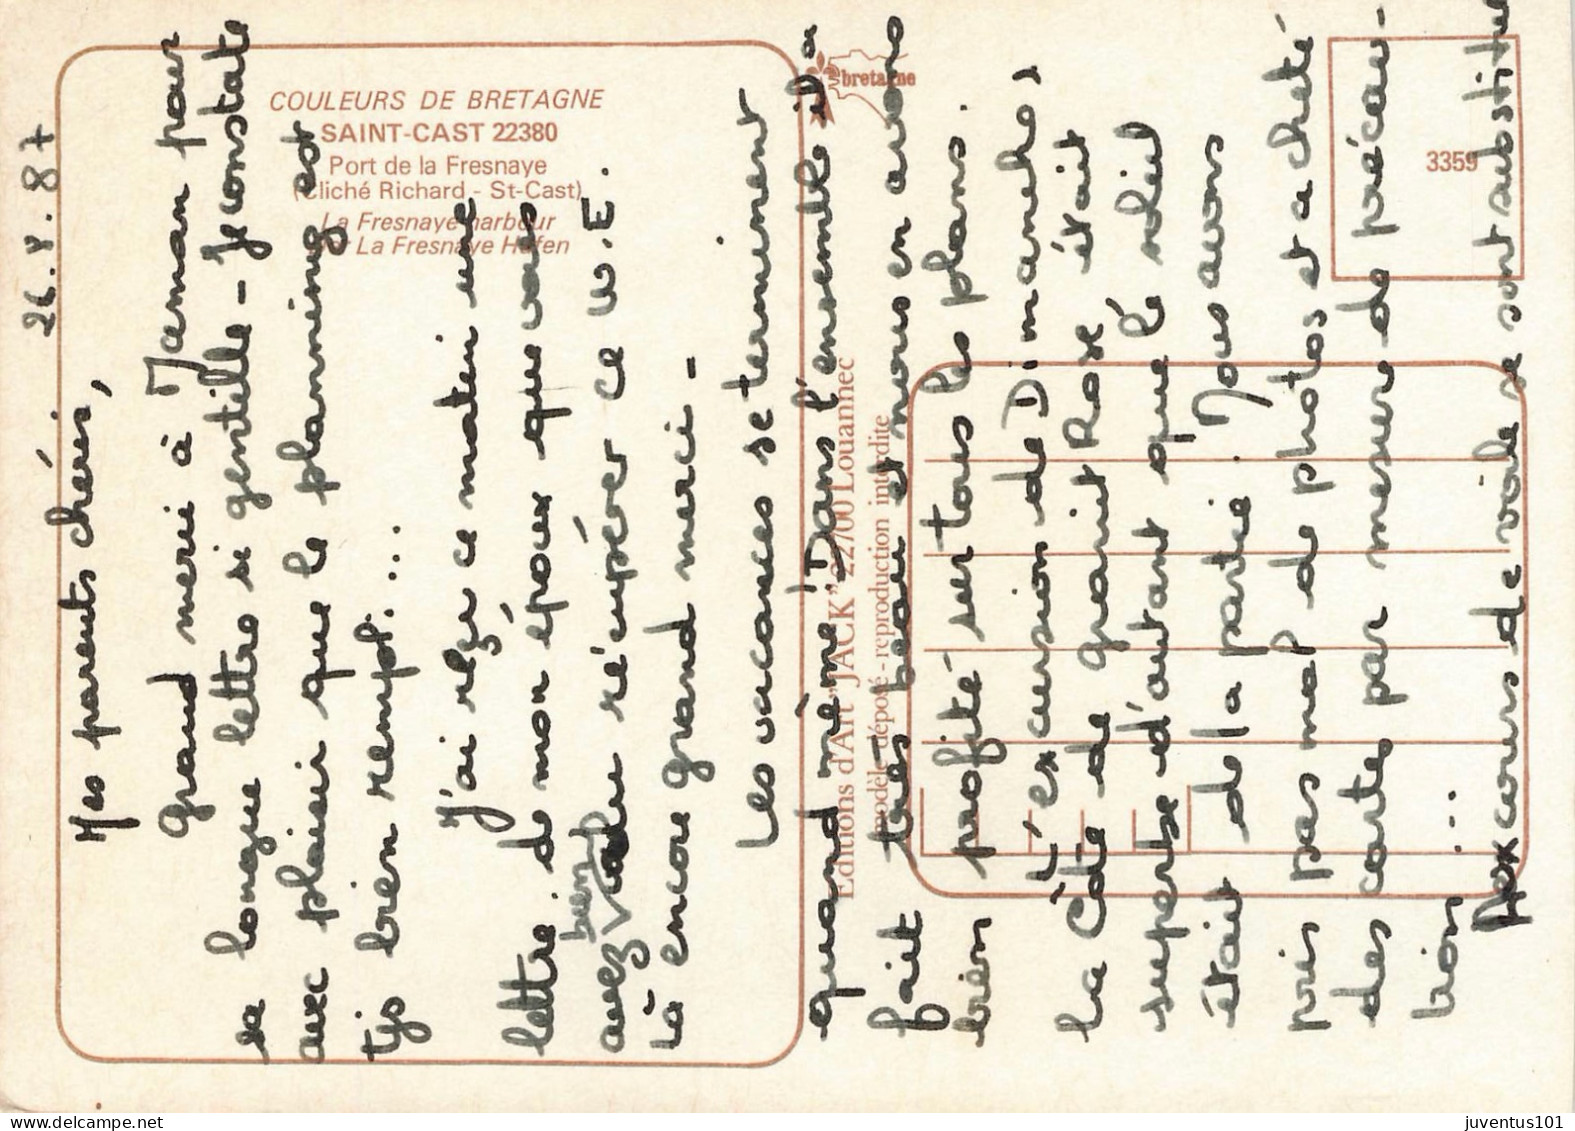 COULEURS DE BRETAGNE
SAINT-CAST 22380
Port de la Fresnaye
(Cliché Richard - St-Cast)
La Fresnaye harbour
La Fresnaye Hafen
bretagne
3359
Editions d'Art "JACK" 22700 Louannec
modèle déposé - reproduction interdite
26.8.87
Mes parents chéris,
Grand merci à Maman pour
sa longue lettre si gentille - Je constate
avec plaisir que le planning est
tjs bien rempl....
J'ai reçu ce matin une
lettre de mon époux que vous
avez bien voulu récupérer ce W.E.
Là encore grand merci -
Les vacances se terminent
quand même. Dans l'ensemble il a
fait très beau et nous en avons
bien profité sur tous les plans.
L'excursion de Dimanche,
la Côte de granit Rose était
superbe d'autant que le soleil
était de la partie. Nous avons
pris pas mal de photos et acheté
des cartes par mesure de précau-
tion...
Aux cours de voile se sont substitué
juventus101